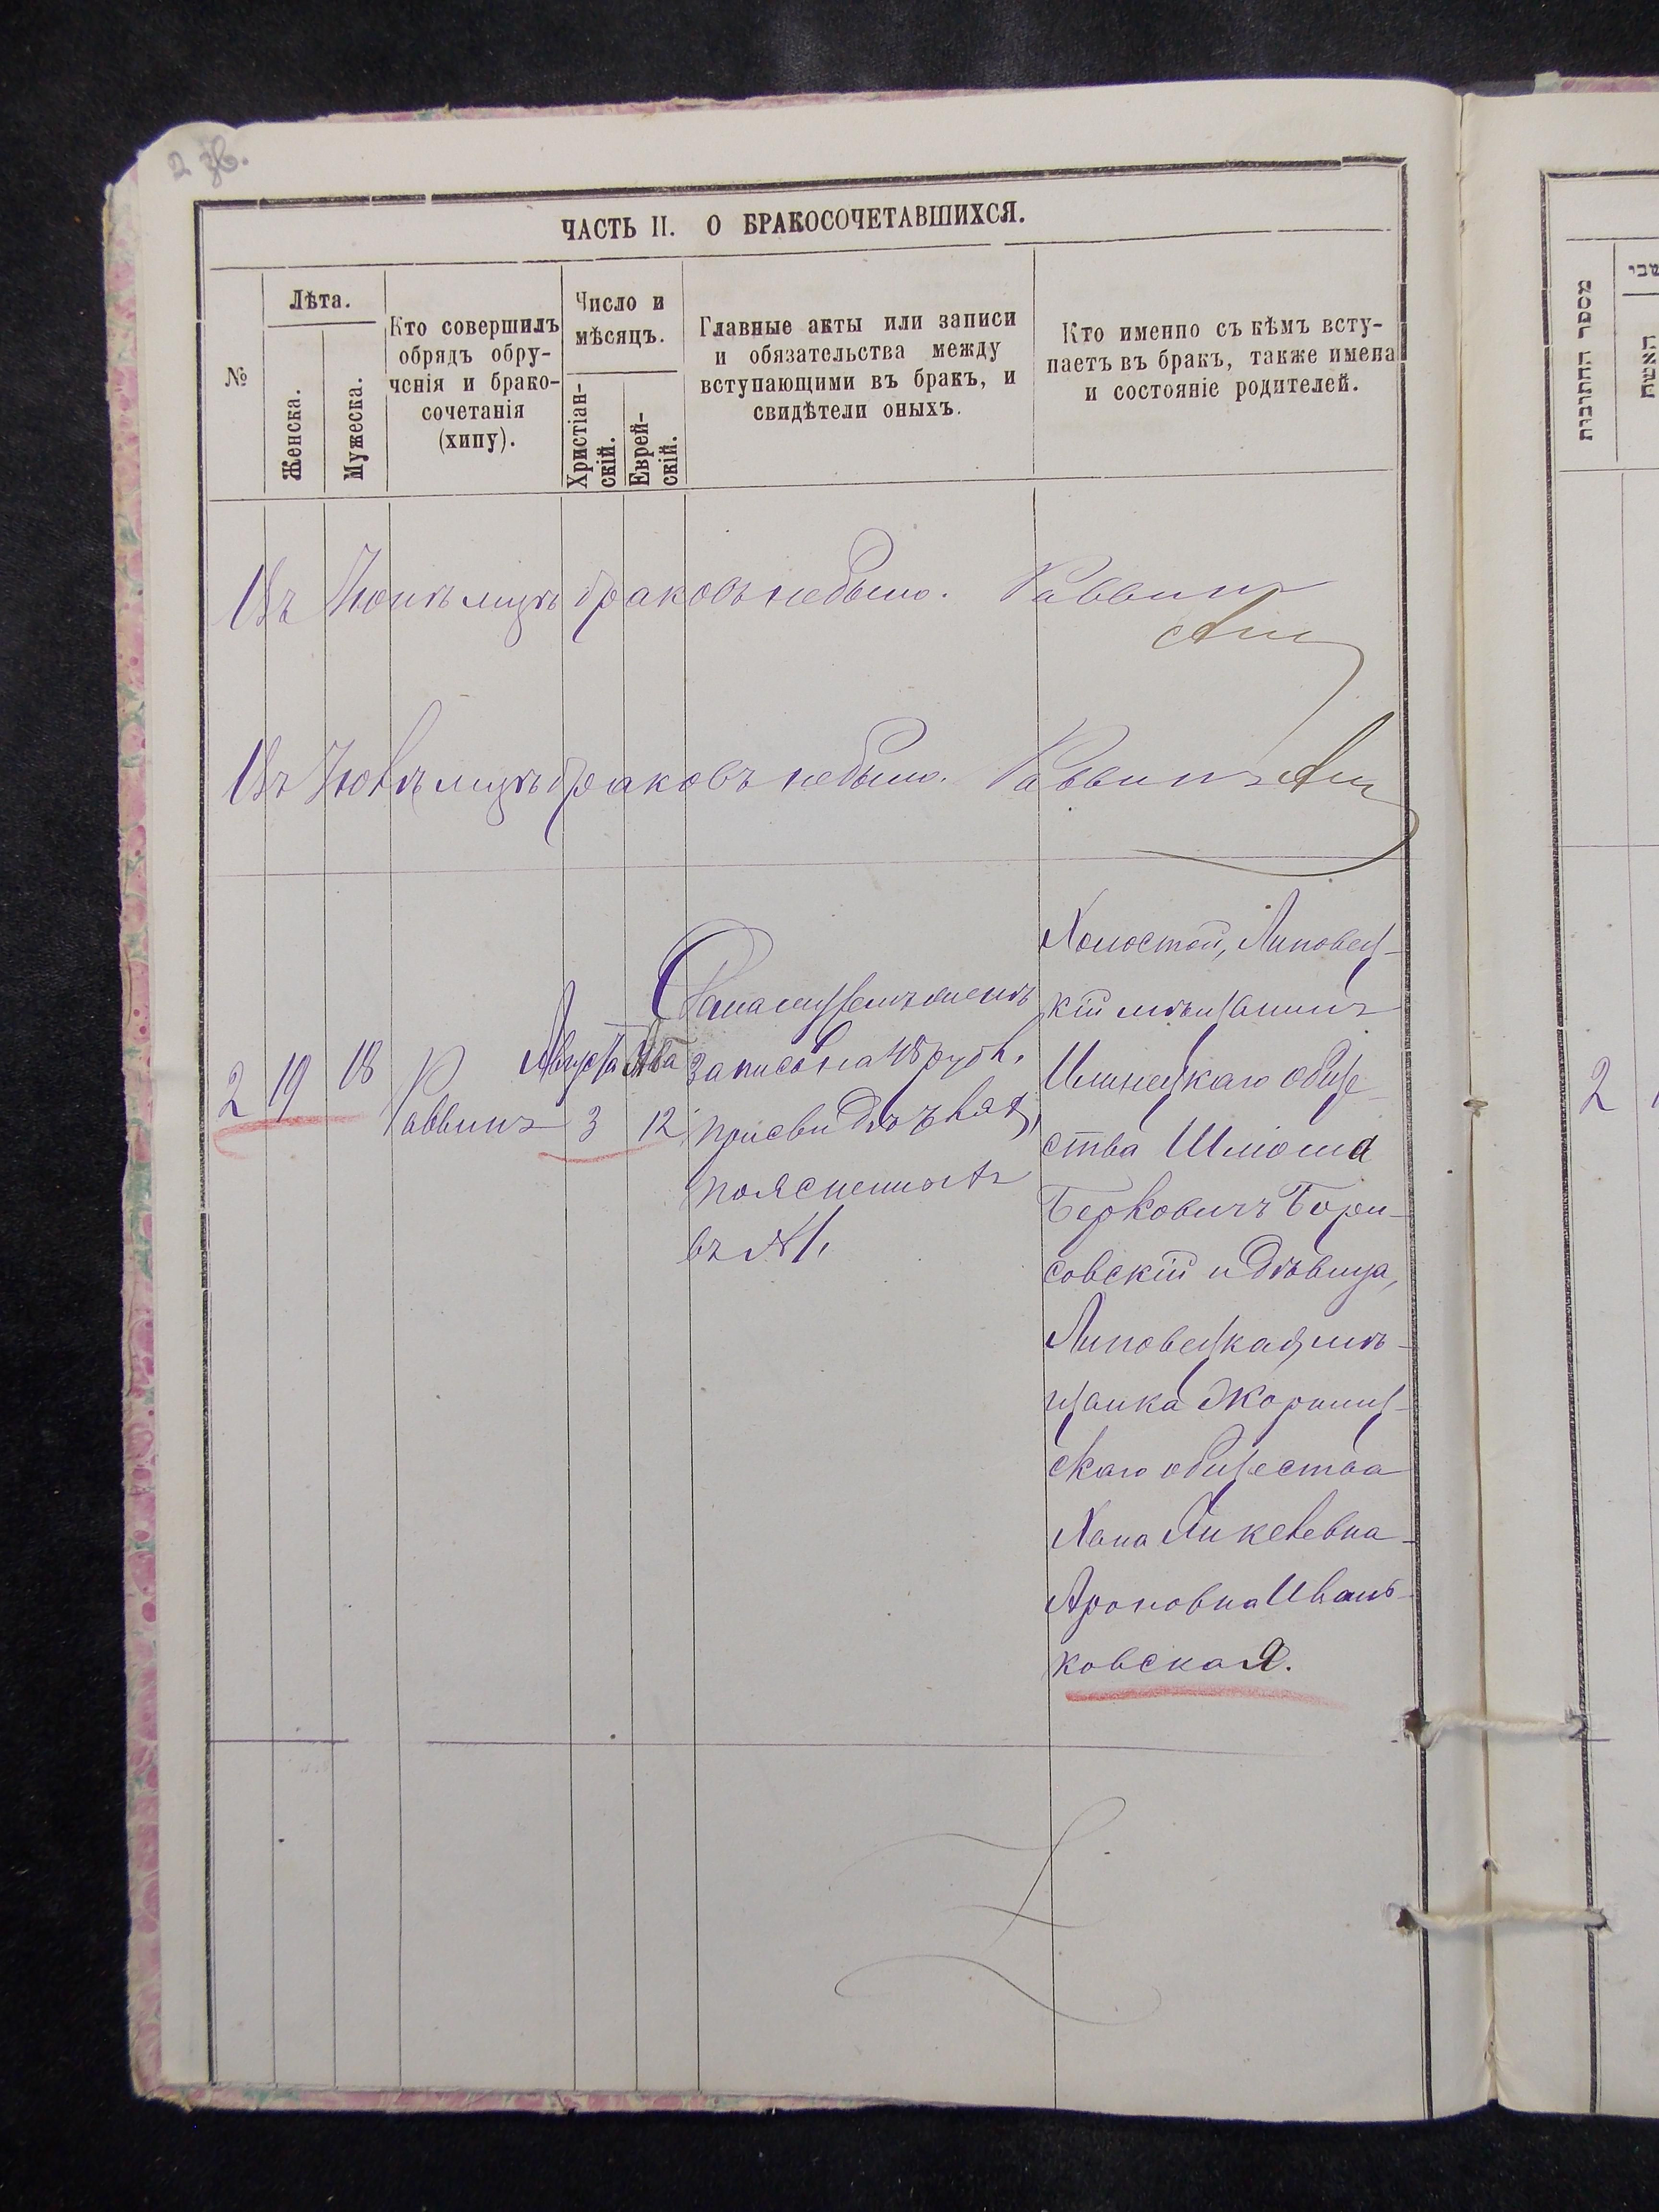 2 зв.
ЧАСТЬ II. О БРАКОСОЧЕТАВШИХСЯ.
№
Лѣта.
Женска.
Мужеска.
Кто совершилъ
обрядъ обру-
ченія и брако-
сочетанія
(хипу).
Число и
мѣсяцъ.
Христіан-
скій.
Еврей-
скій.
Главные акты или записи
и обязательства между
вступающими въ бракъ, и
свидѣтели оныхъ.
Кто именно съ кѣмъ всту-
паетъ въ бракъ, также имена
и состояніе родителей.
Въ Іюнѣ мцѣ браковъ небыло. Раввинъ
Въ Іюлѣ мцѣ браковъ небыло. Раввинъ
2
19
18
Раввинъ
Августа
3
Ава
12
запись на 48 руб.
при свидѣтеляхъ,
поясненныхъ
въ №1.
Холостой, Липовец-
кій мѣщанинъ
Илинецкаго обще-
ства Шліома
Берковичъ Бори-
совскій и дѣвица,
Липовецкая мѣ-
щанка Жорнищ-
скаго общества
Хана Янкелевна-
Ароновна Ивань-
ковская.
מספר החתונות
האשה
2